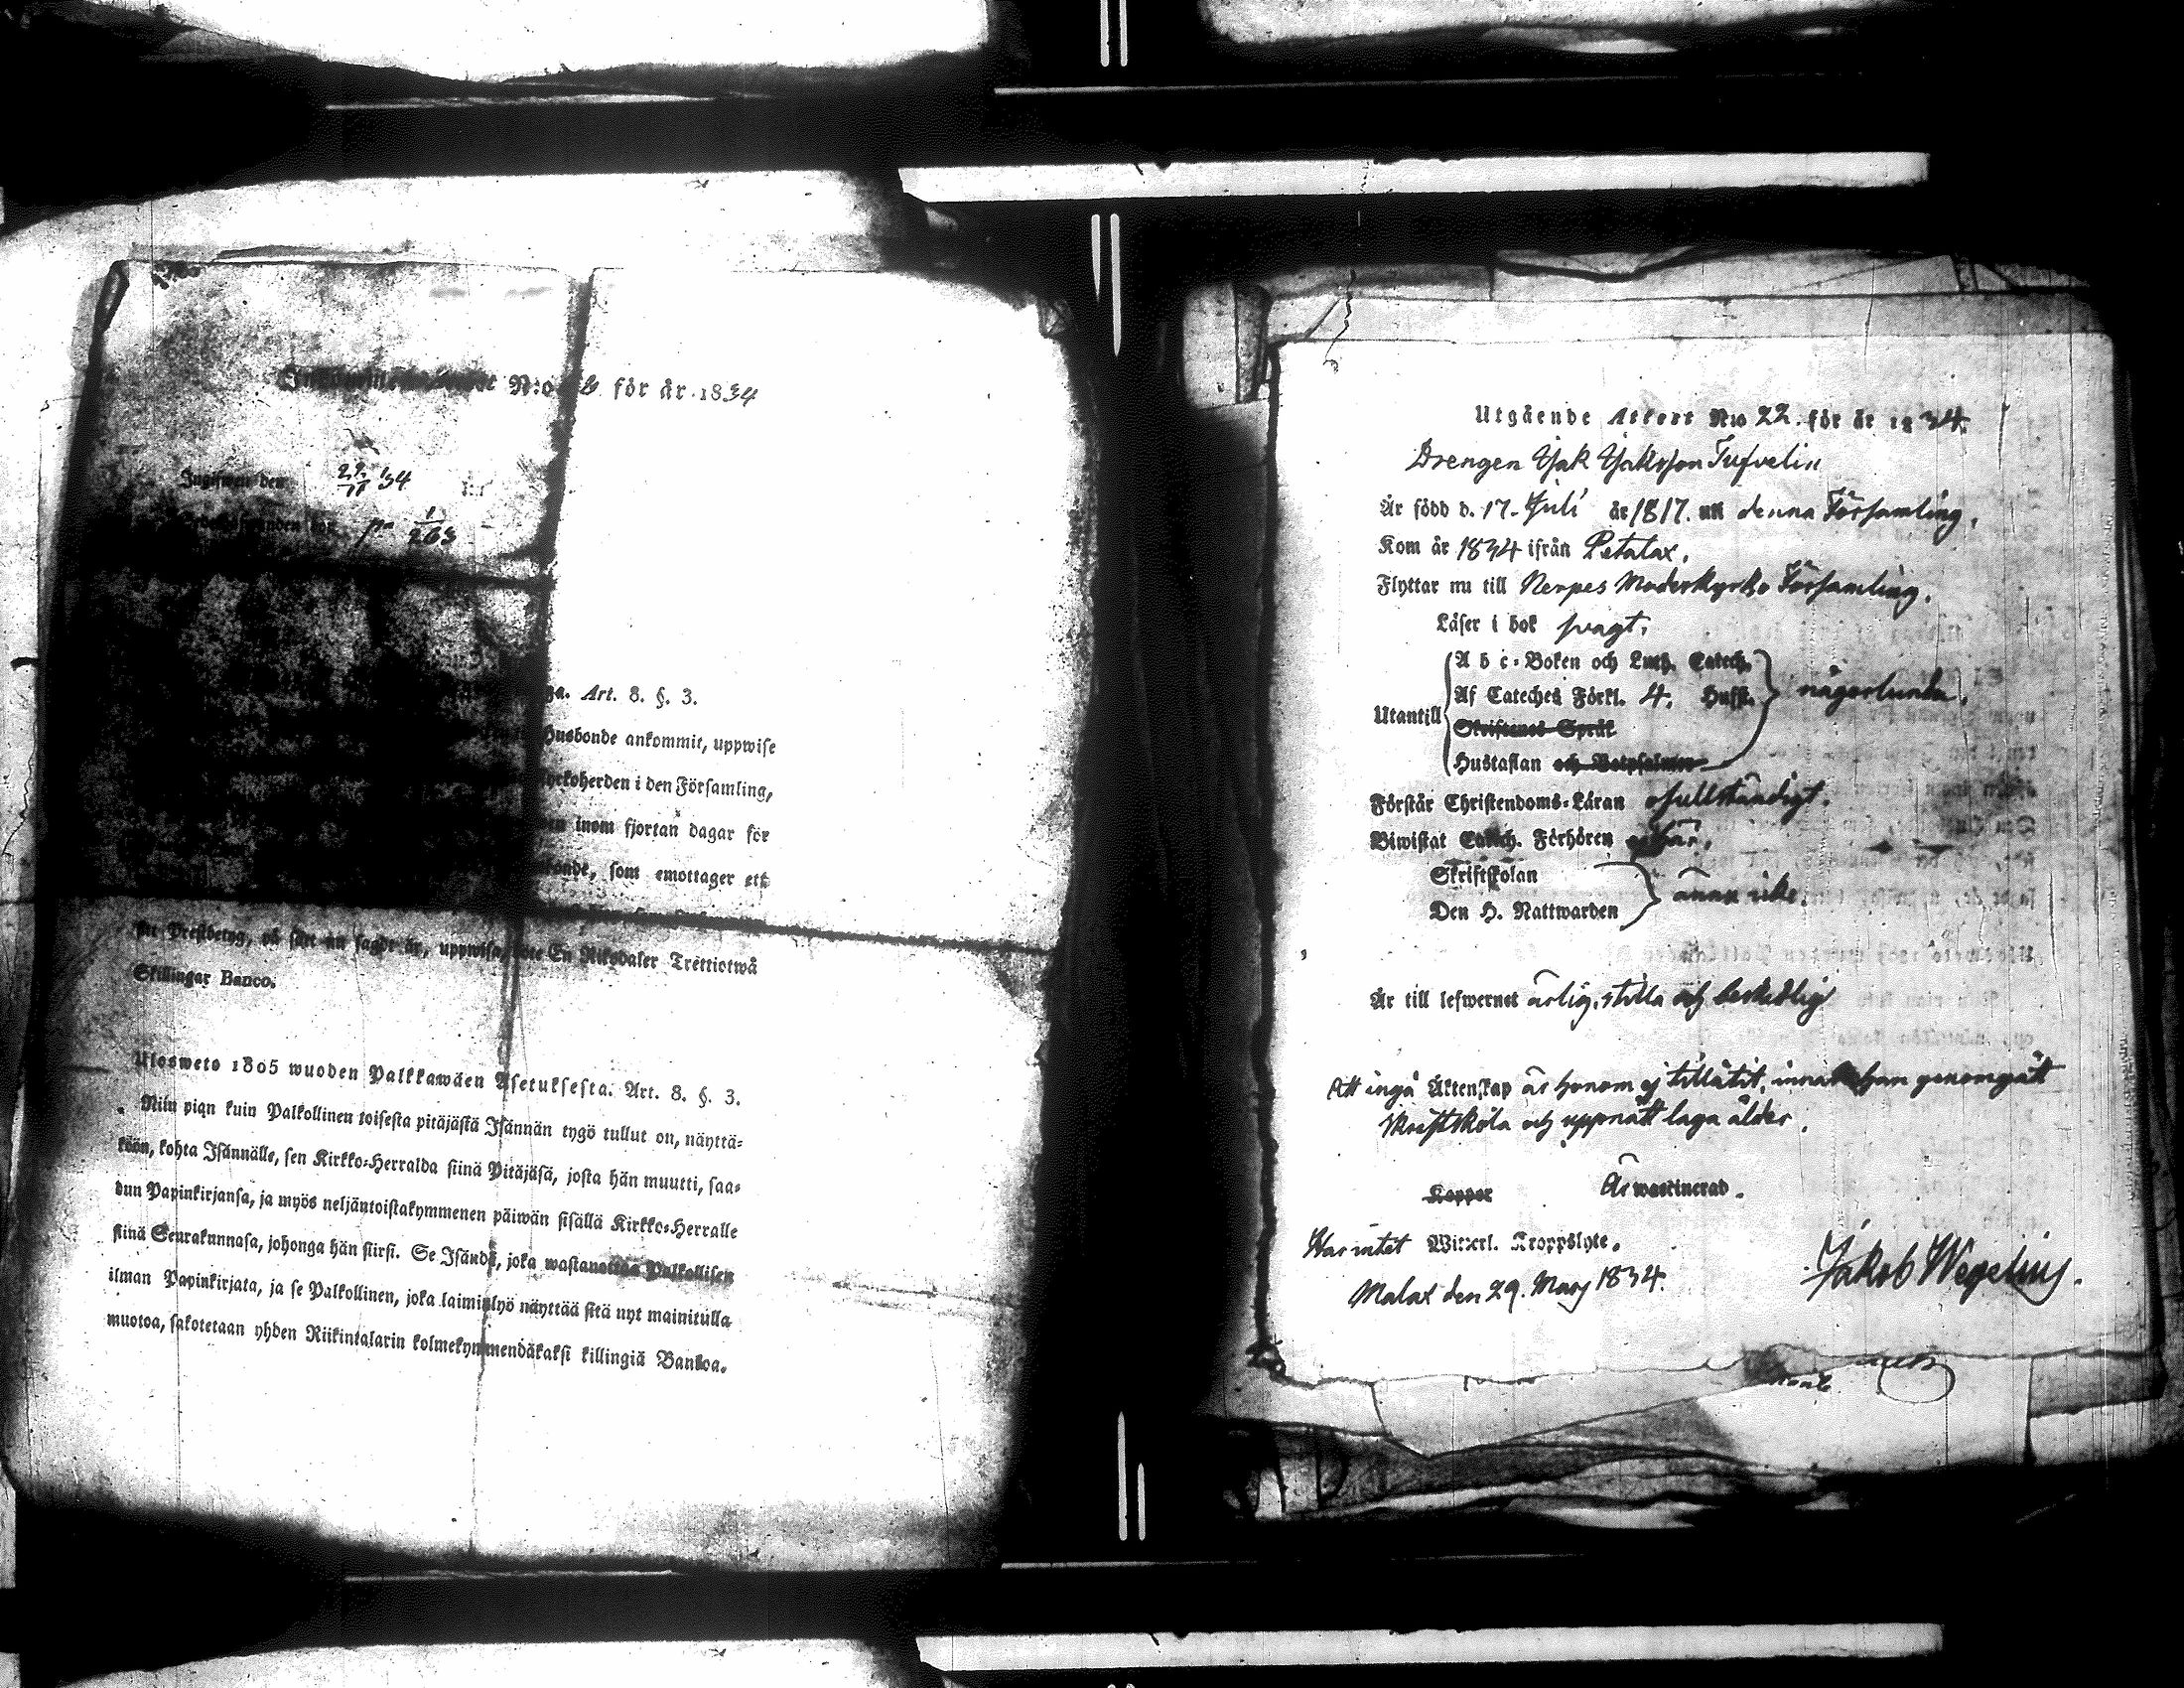 N:o 6 för år 1834
Ingifwen den 22/11 34
p. 1/263
Art. 8. §. 3.
Husbonde ankommit, uppwise
Kyrkoherden i den Församling,
inom fjortan dagar för
som emottager ett
sitt Prestbetyg, på sätt nu sagdt är, uppwisa, böte En Riksdaler Trettiotwå
Skillingar Banco.
Ulosweto 1805 wuoden Palkkawäen Asetuksesta. Art. 8. §. 3.
Niin pian kuin Palkollinen toisesta pitäjästä Isännän tygö tullut on, näyttä-
köön, kohta Isännälle, sen Kirkko-Herralda siinä Pitäjäsä, josta hän muutti, saa-
dun Papinkirjansa, ja myös neljäntoistakymmenen päiwän sisällä Kirkko-Herralle
siinä Seurakunnasa, johonga hän siirsi. Se Isändä, joka wastanottaa Palkollisen
ilman Papinkirjata, ja se Palkollinen, joka laiminlyö näyttää sitä nyt mainitulla
muotoa, sakotetaan yhden Riikintalarin kolmekymmendäkaksi killingiä Bankoa.
Utgående Attest N:o 22. för år 1834.
Drengen Jak Jakosson Tufvelin
Är född d. 17. Juli år 1817. uti denna Församling,
Kom år 1834 ifrån Petalax,
Flyttar nu till Nerpes Moderkyrko Församling.
Läser i bok svagt,
A b c-Boken och Luth. Catech.
Af Cateches Förkl. 4. Hufst. någorlunda.
Utantill
Skriftenes Språk
Hustaflan och Botpsalmer
Förstår Christendoms-Läran ofullständigt.
Biwistat Catech. Förhören här,
Skriftskolan
Den H. Nattwarden ännu icke.
Är till lefwernet ärlig, stilla och beskedlig
Att ingå Äktenskap är honom ej tillåtit, innan han genomgått
Skriftskola och uppnått laga ålder.
Koppor Är waccinerad.
Har intet Witterl. Kroppslyte.
Malax den 29. Marj 1834. Jakob Wegelius.